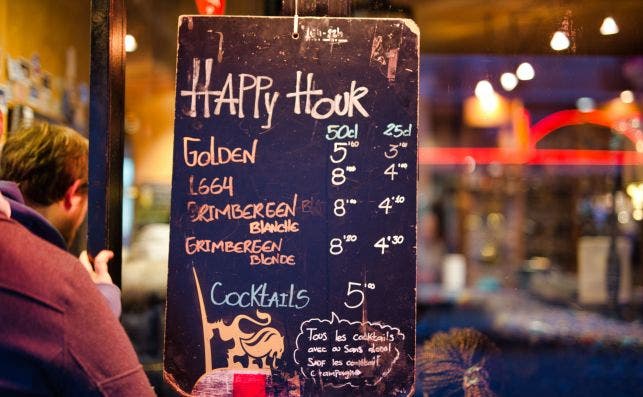 16h-22h
Happy Hour
50cl 25cl
Golden 5'00 3'00
1664 8'00 4'00
Grimbereen 8'00 4'20
Blanche
Grimbereen 8'20 4'30
Blonde
Cocktails 5'00
Tous les cocktails
avec ou sans alcool
Sauf les cocktail
Champagne